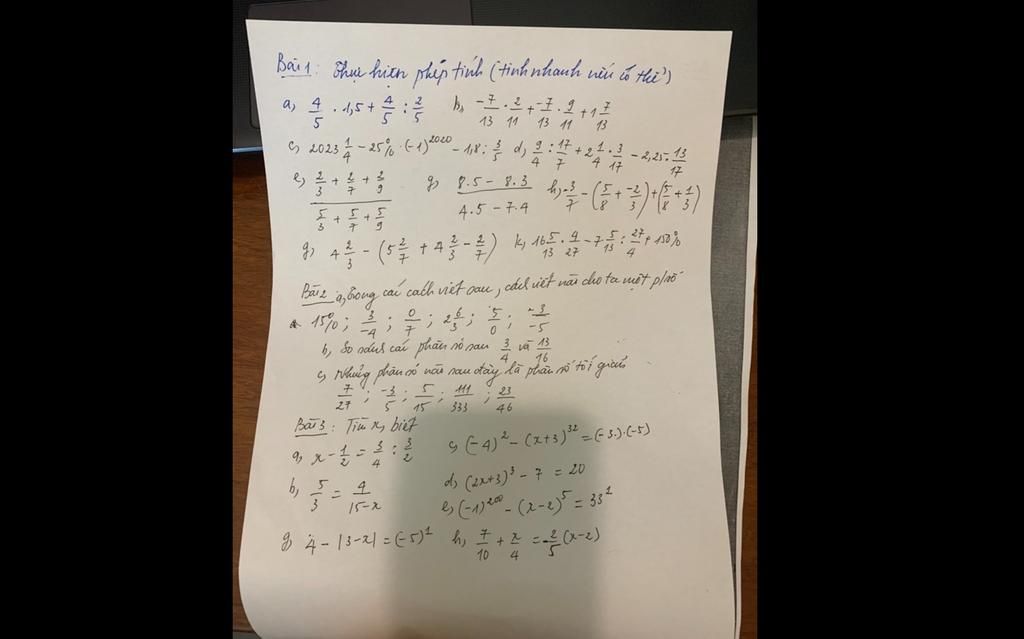 Bài 1: Thực hiện phép tính (tính nhanh nếu có thể)
a, 4/5 . 1,5 + 4/5 : 2/5 b, -7/13 . 2/11 + -7/13 . 9/11 + 1 7/13
c, 2023 1/4 - 25% . (-1)^2020 - 1,8 : 3/5 d, 9/4 : 17/7 + 2 1/4 . 3/17 - 2,25 . 13/17
e, (2/3 + 2/7 + 2/9) / (5/3 + 5/7 + 5/9) g, (8.5 - 8.3) / (4.5 - 7.4) h, -3/7 - (5/8 + -2/3) + (5/8 + 1/3)
g, 4 2/3 - (5 2/7 + 4 2/3 - 2/7) k, 16 5/13 . 4/27 - 7 5/13 : 27/4 + 150%
Bài 2 a, Trong các cách viết sau, cách viết nào cho ta một p/số
15%; 3/-4; 0/7; 2 6/3; 5/0; -3/-5
b, So sánh các phân số sau 3/4 và 13/16
c, Những phân số nào sau đây là phân số tối giản
7/27; -3/5; 5/15; 111/333; 23/46
Bài 3: Tìm x, biết
a, x - 1/2 = 3/4 : 3/2 c, (-4)^2 - (x+3)^32 = (-3).(-5)
b, 5/3 = 4/(15-x) d, (2x+3)^3 - 7 = 20
e, (-1)^200 - (x-2)^5 = 33^1
g, 4 - |3-x| = (-5)^1 h, 7/10 + x/4 = -2/5 (x-2)